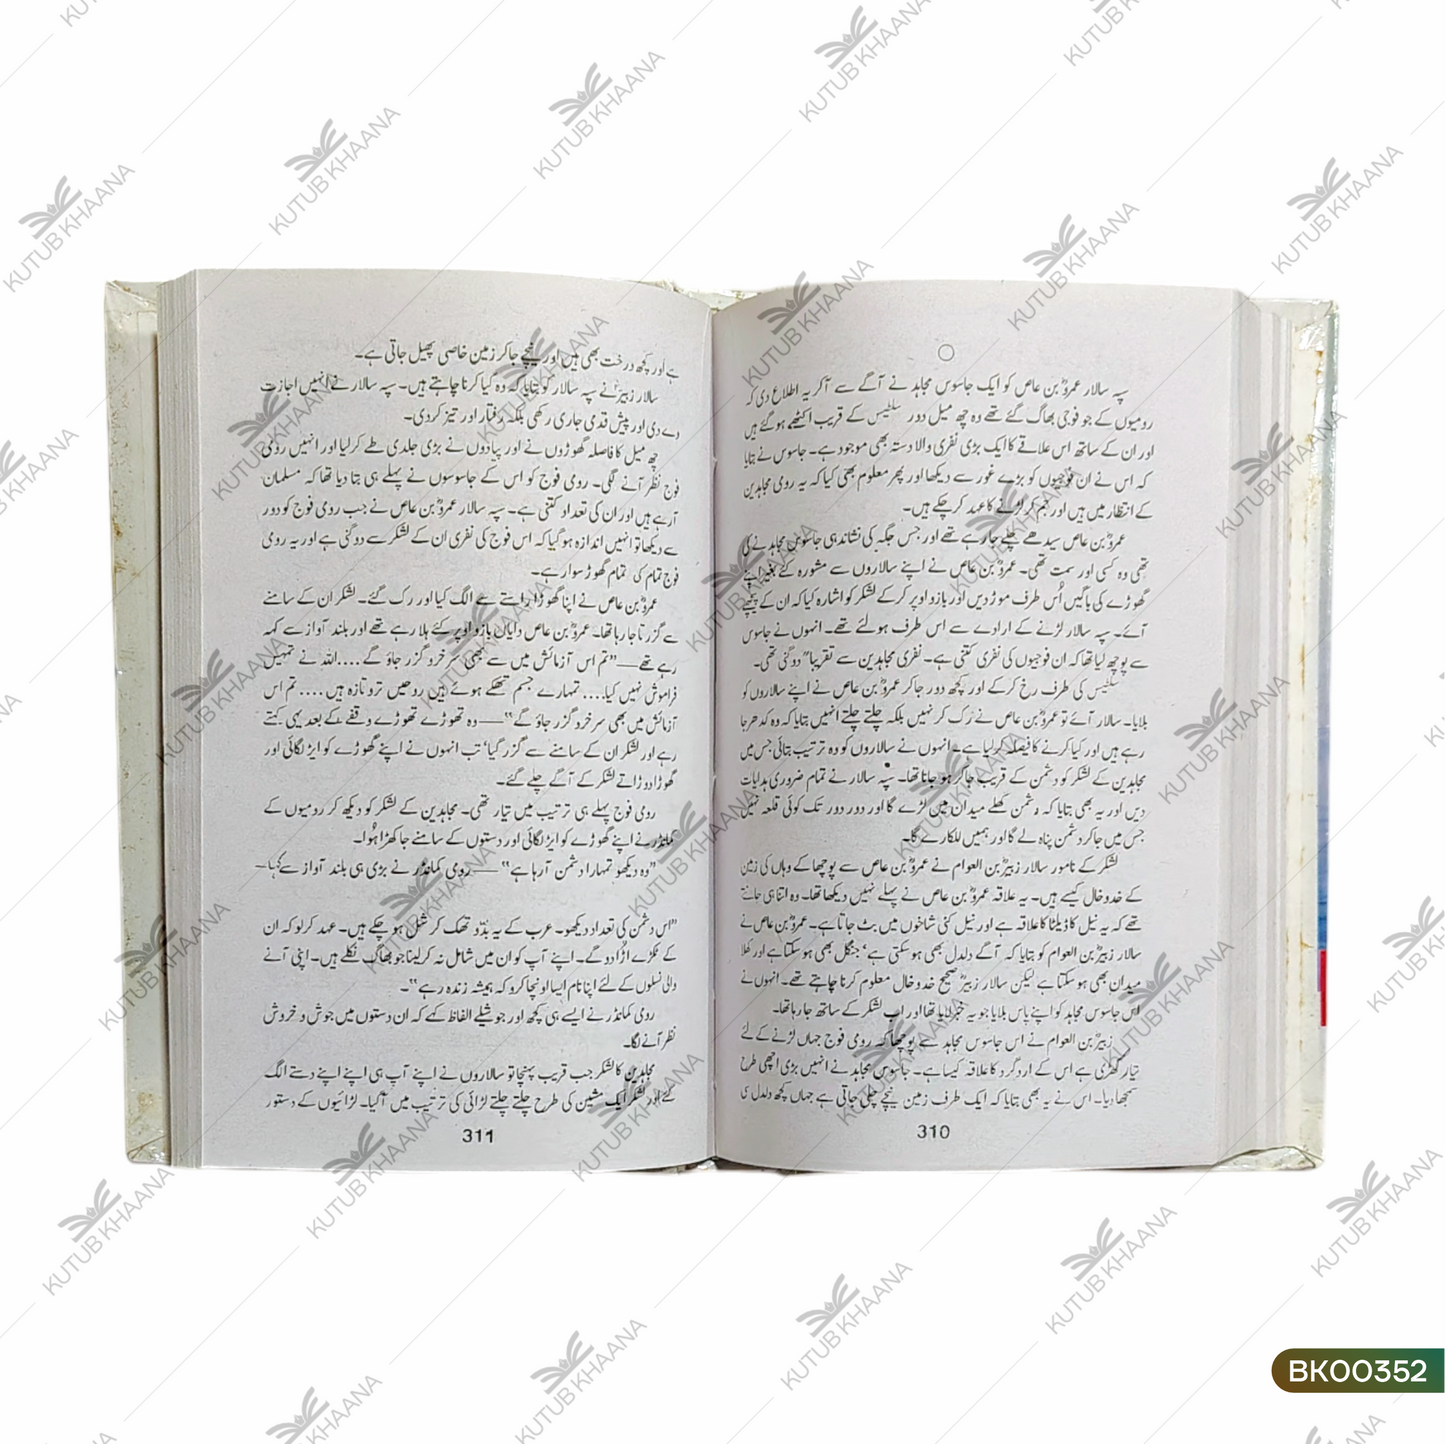 سپہ سالار عمروؓ بن عاص کو ایک جاسوس مجاہد نے آگے سے آ کر یہ اطلاع دی کہ
رومیوں کے جو فوجی بھاگ گئے تھے وہ چھ میل دور سلٹیس کے قریب اکٹھے ہو گئے ہیں
اور ان کے ساتھ اس علاقے کا ایک بڑی نفری والا دستہ بھی موجود ہے۔ جاسوس نے بتایا
کہ اس نے ان فوجیوں کو بڑے غور سے دیکھا اور پھر معلوم بھی کیا کہ یہ رومی مجاہدین
کے انتظار میں ہیں اور جم کر لڑنے کا عہد کر چکے ہیں۔
عمروؓ بن عاص سیدھے چلے جا رہے تھے اور جس جگہ کی نشاندہی جاسوس مجاہد نے کی
تھی وہ کسی اور سمت تھی۔ عمروؓ بن عاص نے اپنے سالاروں سے مشورہ کئے بغیر اپنے
گھوڑے کی باگیں اُس طرف موڑ دیں اور بازو اوپر کر کے لشکر کو اشارہ کیا کہ ان کے پیچھے
آئے۔ سپہ سالار لڑنے کے ارادے سے اس طرف ہو لئے تھے۔ انہوں نے جاسوس
سے پوچھ لیا تھا کہ ان فوجیوں کی نفری کتنی ہے۔ نفری مجاہدین سے تقریباً دو گنی تھی۔
سلٹیس کی طرف رخ کر کے اور کچھ دور جا کر عمروؓ بن عاص نے اپنے سالاروں کو
بلایا۔ سالار آئے تو عمروؓ بن عاص نے رک کر نہیں بلکہ چلتے چلتے انہیں بتایا کہ وہ کدھر جا
رہے ہیں اور کیا کرنے کا فیصلہ کر لیا ہے۔ انہوں نے سالاروں کو وہ ترتیب بتائی جس میں
مجاہدین کے لشکر کو دشمن کے قریب جا کر ہو جانا تھا۔ سپہ سالار نے تمام ضروری ہدایات
دیں اور یہ بھی بتایا کہ دشمن کھلے میدان میں لڑے گا اور دور دور تک کوئی قلعہ نہیں
جس میں جا کر دشمن پناہ لے گا اور ہمیں للکارے گا۔
لشکر کے نامور سالار زبیرؓ بن العوام نے عمروؓ بن عاص سے پوچھا کے وہاں کی زمین
کے خدوخال کیسے ہیں۔ یہ علاقہ عمروؓ بن عاص نے پہلے نہیں دیکھا تھا۔ وہ اتنا ہی جانتے
تھے کہ یہ نیل کا ڈیلٹا کا علاقہ ہے اور نیل کئی شاخوں میں بٹ جاتا ہے۔ عمروؓ بن عاص نے
سالار زبیرؓ بن العوام کو بتایا کہ آگے دلدل بھی ہو سکتی ہے‘ جنگل بھی ہو سکتا ہے اور کھلا
میدان بھی ہو سکتا ہے لیکن سالار زبیرؓ صحیح خدوخال معلوم کرنا چاہتے تھے۔ انہوں نے
اس جاسوس مجاہد کو اپنے پاس بلایا جو یہ خبر لایا تھا اور اب لشکر کے ساتھ جا رہا تھا۔
زبیرؓ بن العوام نے اس جاسوس مجاہد سے پوچھا کہ رومی فوج جہاں لڑنے کے لئے
تیار کھڑی ہے اس کے اردگرد کا علاقہ کیسا ہے۔ جاسوس مجاہد نے انہیں بڑی اچھی طرح
سمجھا دیا۔ اس نے یہ بھی بتایا کہ ایک طرف زمین نیچے چلی جاتی ہے جہاں کچھ دلدل سی
310
ہے اور کچھ درخت بھی ہیں اور نیچے جا کر زمین خاصی پھیل جاتی ہے۔
سالار زبیرؓ نے سپہ سالار کو بتایا کہ وہ کیا کرنا چاہتے ہیں۔ سپہ سالار نے انہیں اجازت
دے دی اور پیش قدمی جاری رکھی بلکہ رفتار اور تیز کر دی۔
چھ میل کا فاصلہ گھوڑوں نے اور پیادوں نے بڑی جلدی طے کر لیا اور انہیں رومی
فوج نظر آنے لگی۔ رومی فوج کو اس کے جاسوسوں نے پہلے ہی بتا دیا تھا کہ مسلمان
آ رہے ہیں اور ان کی تعداد کتنی ہے۔ سپہ سالار عمروؓ بن عاص نے جب رومی فوج کو دور
سے دیکھا تو انہیں اندازہ ہو گیا کہ اس فوج کی نفری ان کے لشکر سے دو گنی ہے اور یہ رومی
فوج تمام کی تمام گھوڑ سوار ہے۔
عمروؓ بن عاص نے اپنا گھوڑا راستے سے الگ کیا اور رک گئے۔ لشکر ان کے سامنے
سے گزرتا جا رہا تھا۔ عمروؓ بن عاص دایاں بازو اوپر کئے ہلا رہے تھے اور بلند آواز سے کہہ
رہے تھے۔۔۔"تم اس آزمائش میں سے بھی سرخرو گزر جاؤ گے .... اللہ نے تمہیں
فراموش نہیں کیا.... تمہارے جسم تھکے ہوئے ہیں روحیں تروتازہ ہیں .... تم اس
آزمائش میں بھی سرخرو گزر جاؤ گے"۔۔۔ وہ تھوڑے تھوڑے وقفے کے بعد یہی کہتے
رہے اور لشکر ان کے سامنے سے گزر گیا‘ تب انہوں نے اپنے گھوڑے کو ایڑ لگائی اور
گھوڑا دوڑاتے لشکر کے آگے چلے گئے۔
رومی فوج پہلے ہی ترتیب میں تیار تھی۔ مجاہدین کے لشکر کو دیکھ کر رومیوں کے
کمانڈر نے اپنے گھوڑے کو ایڑ لگائی اور دستوں کے سامنے جا کھڑا ہُوا۔
"وہ دیکھو تمہارا دشمن آ رہا ہے"۔۔۔رومی کمانڈر نے بڑی ہی بلند آواز سے کہا۔۔
"اس دشمن کی تعداد دیکھو۔ عرب کے یہ بدّو تھک کر شل ہو چکے ہیں۔ عہد کر لو کہ ان
کے ٹکڑے اڑا دو گے۔ اپنے آپ کو ان میں شامل نہ کر لینا جو بھاگ نکلے ہیں۔ اپنی آنے
والی نسلوں کے لئے اپنا نام ایسا اونچا کرو کہ ہمیشہ زندہ رہے"۔
رومی کمانڈر نے ایسے ہی کچھ اور جوشیلے الفاظ کہے کہ ان دستوں میں جوش و خروش
نظر آنے لگا۔
مجاہدین کا لشکر جب قریب پہنچا تو سالاروں نے اپنے آپ ہی اپنے اپنے دستے الگ
کئے اور لشکر ایک مشین کی طرح چلتے چلتے لڑائی کی ترتیب میں آ گیا۔ لڑائیوں کے دستور
311
KUTUB KHAANA
BK00352